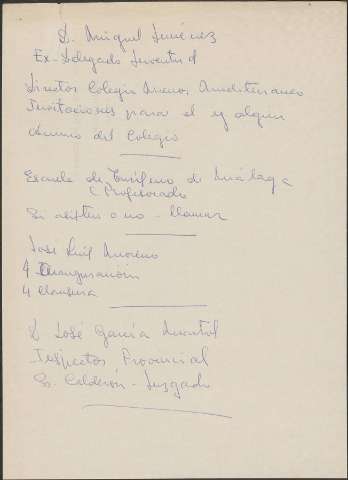 D. Miguel Jiménez
Ex-Delegado Juventud
Director Colegio Nuevo Mediterraneo
Invitaciones para el y algun
alumno del Colegio
Escuela de Turismo de Málaga
Profesorado
Si asisten o no - llamar
José Luis Moreno
4 Inauguración
4 Clausura
D José García
Inspector Provincial
Sr. Calderón - Juzgado